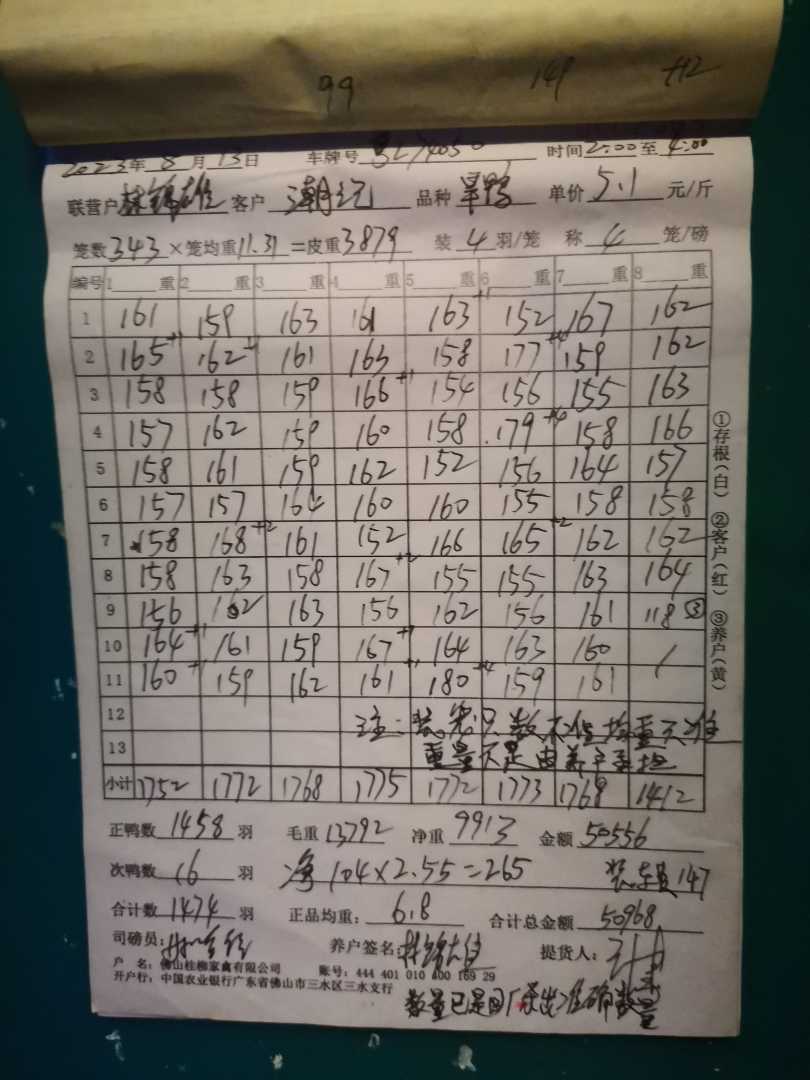 99 141 +12
2023年8月13日 车牌号 时间2:00至4:00
联营户林锦雄 客户 潮记 品种旱鸭 单价5.1元/斤
笼数343×笼均重11.31=皮重3879 装4羽/笼 称4笼/磅
编号 1 重 2 重 3 重 4 重 5 重 6 重 7 重 8 重
1 161 159 163 161 163+1 152 167 162
2 165+1 162 161 163 158 177+4 159 162
3 158 158 159 166+1 154 156 155 163
4 157 162 159 160 158 179+4 158 166
5 158 161 159 162 152 156 164 157
6 157 157 164 160 160 155 158 158
7 158 168+2 161 152 166 165+2 162 162
8 158 163 158 167+2 155 155 163 164
9 156 162 163 156 162 156 161 118③
10 164+1 161 159 167+1 164 163 160 /
11 160+1 159 162 161+1 180+4 159 161
12 注:
13 重量不足由养户承担
小计 1752 1772 1768 1775 1772 1773 1768 1412
正鸭数1458羽 毛重13792 净重9913 金额50556
次鸭数16羽 净104×2.55=265 装车员147
合计数1474羽 正品均重:6.8 合计总金额50968
司磅员: 养户签名:林锦雄 提货人:
户 名:佛山桂柳家禽有限公司 账号:444 401 010 400 169 29
开户行:中国农业银行广东省佛山市三水区三水支行
数量已是回厂杀出准确数量
①存根(白) ②客户(红) ③养户(黄)